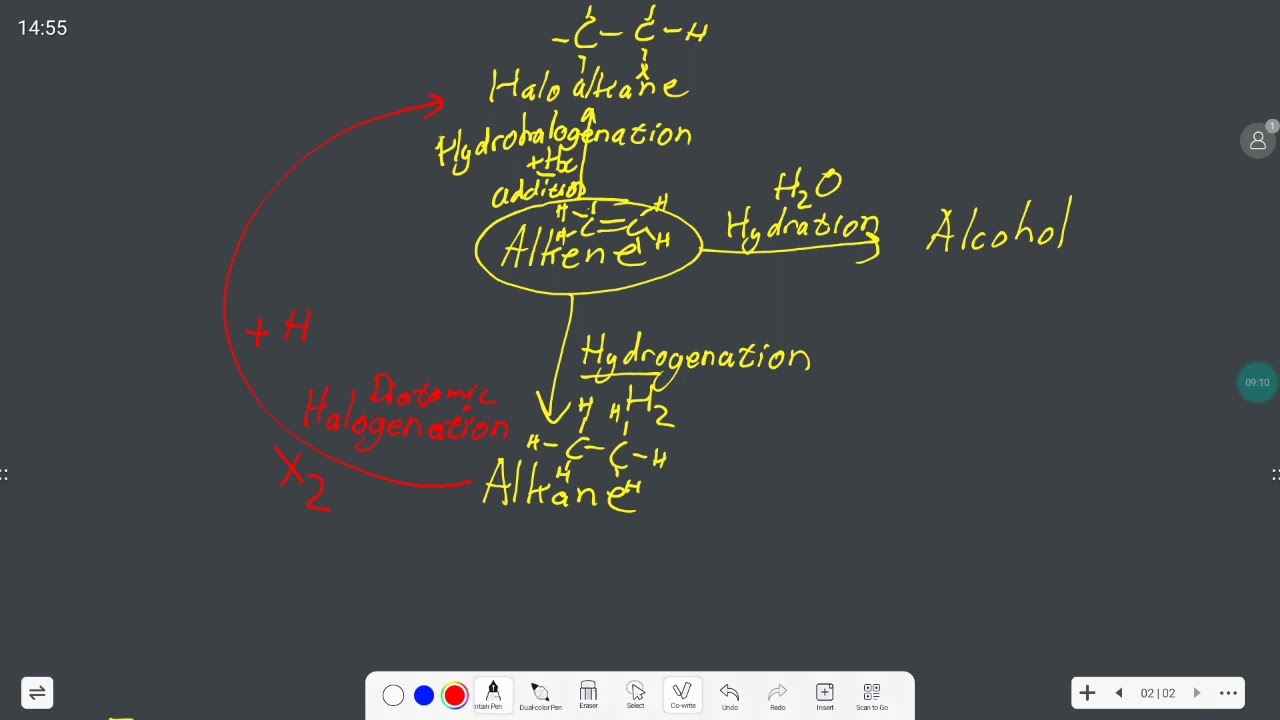 14:55
-C-C-H
x
Halo alkane
Hydrohalogenation
+Hx
addition
H C=C H
H H
Alkene
H2O
Hydration
Alcohol
+ H
Hydrogenation
H2
Diatomic
Halogenation
X2
H H
H-C-C-H
H H
Alkane
1
09:10
ntain Pen
Dual-color Pen
Eraser
Select
Co-write
Undo
Redo
Insert
Scan to Go
02|02